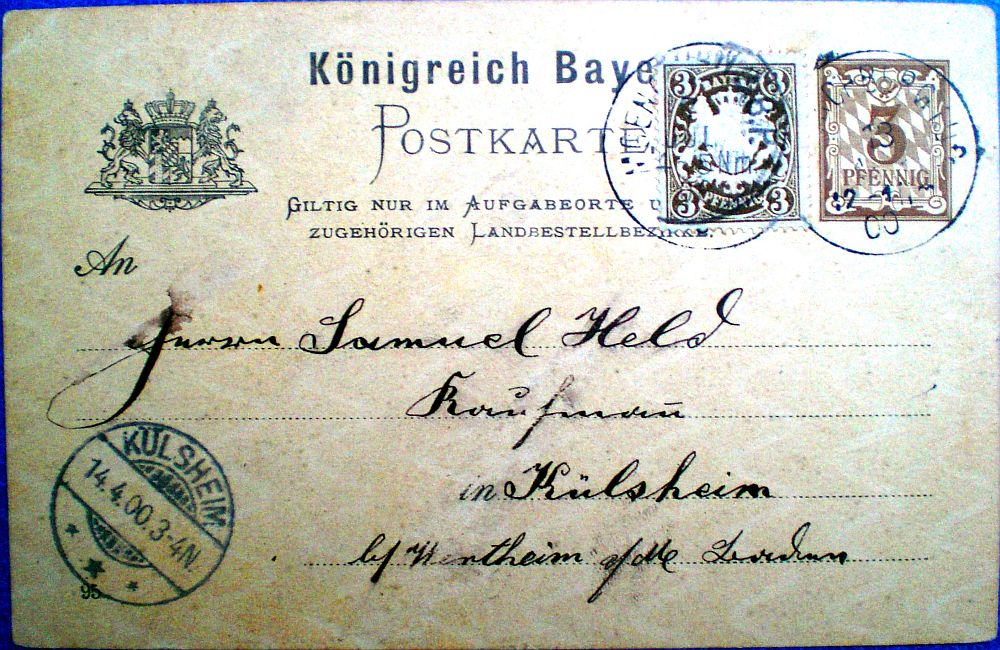 Königreich Baye
POSTKARTE
3 3
3 3
3
PFENNIG
GILTIG NUR IM AUFGABEORTE U
ZUGEHÖRIGEN LANDBESTELLBEZIRKE.
13
12-1
00
An
Herrn Samuel Held
Kaufmann
in Külsheim
b/ Wertheim a/M Baden
KÜLSHEIM
14.4.00.3-4N.
95